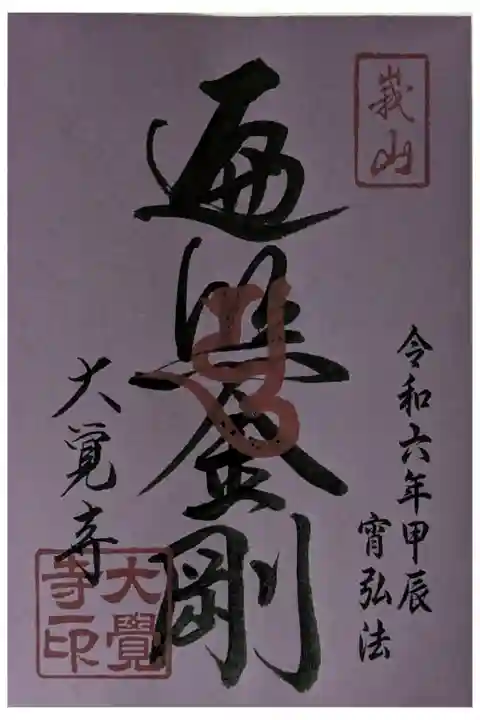 峩山
令和六年甲辰
宵弘法
遍照金剛
大覚寺
大覺寺印